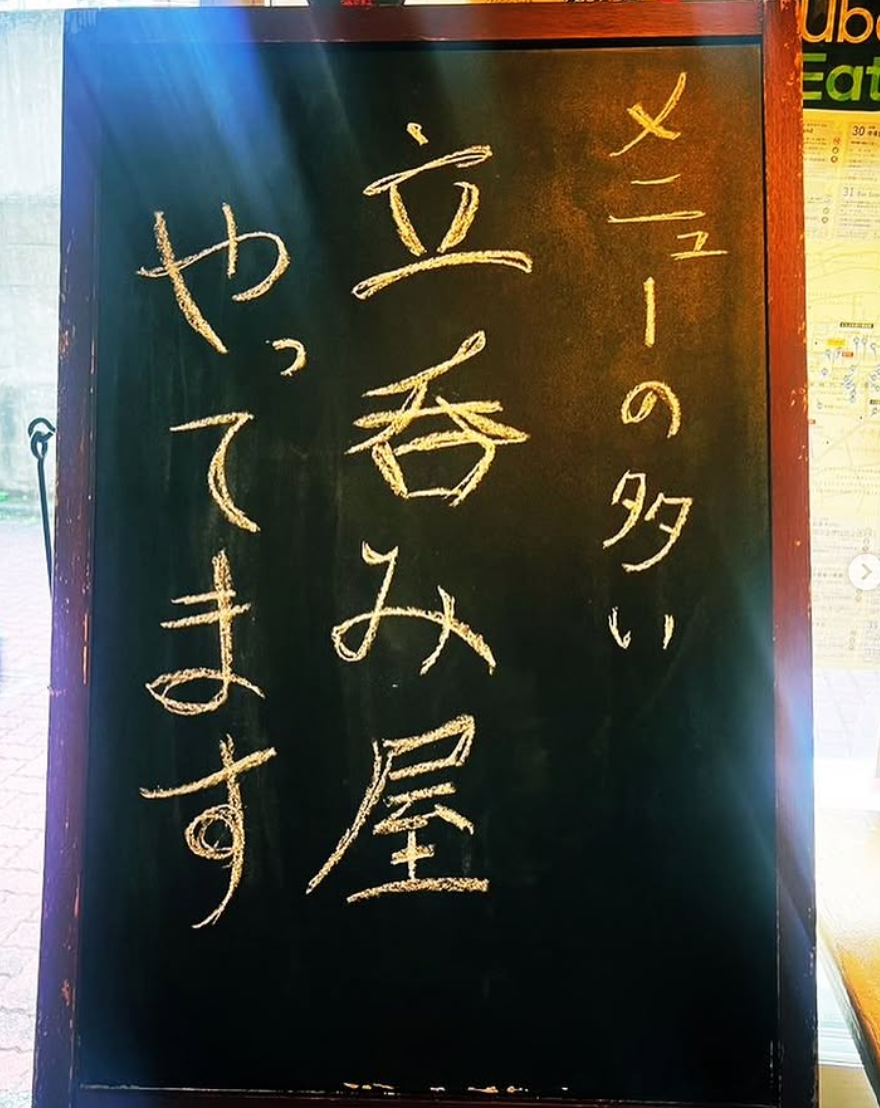 メニューの多い
立呑み屋
やってます
Eat
30
31